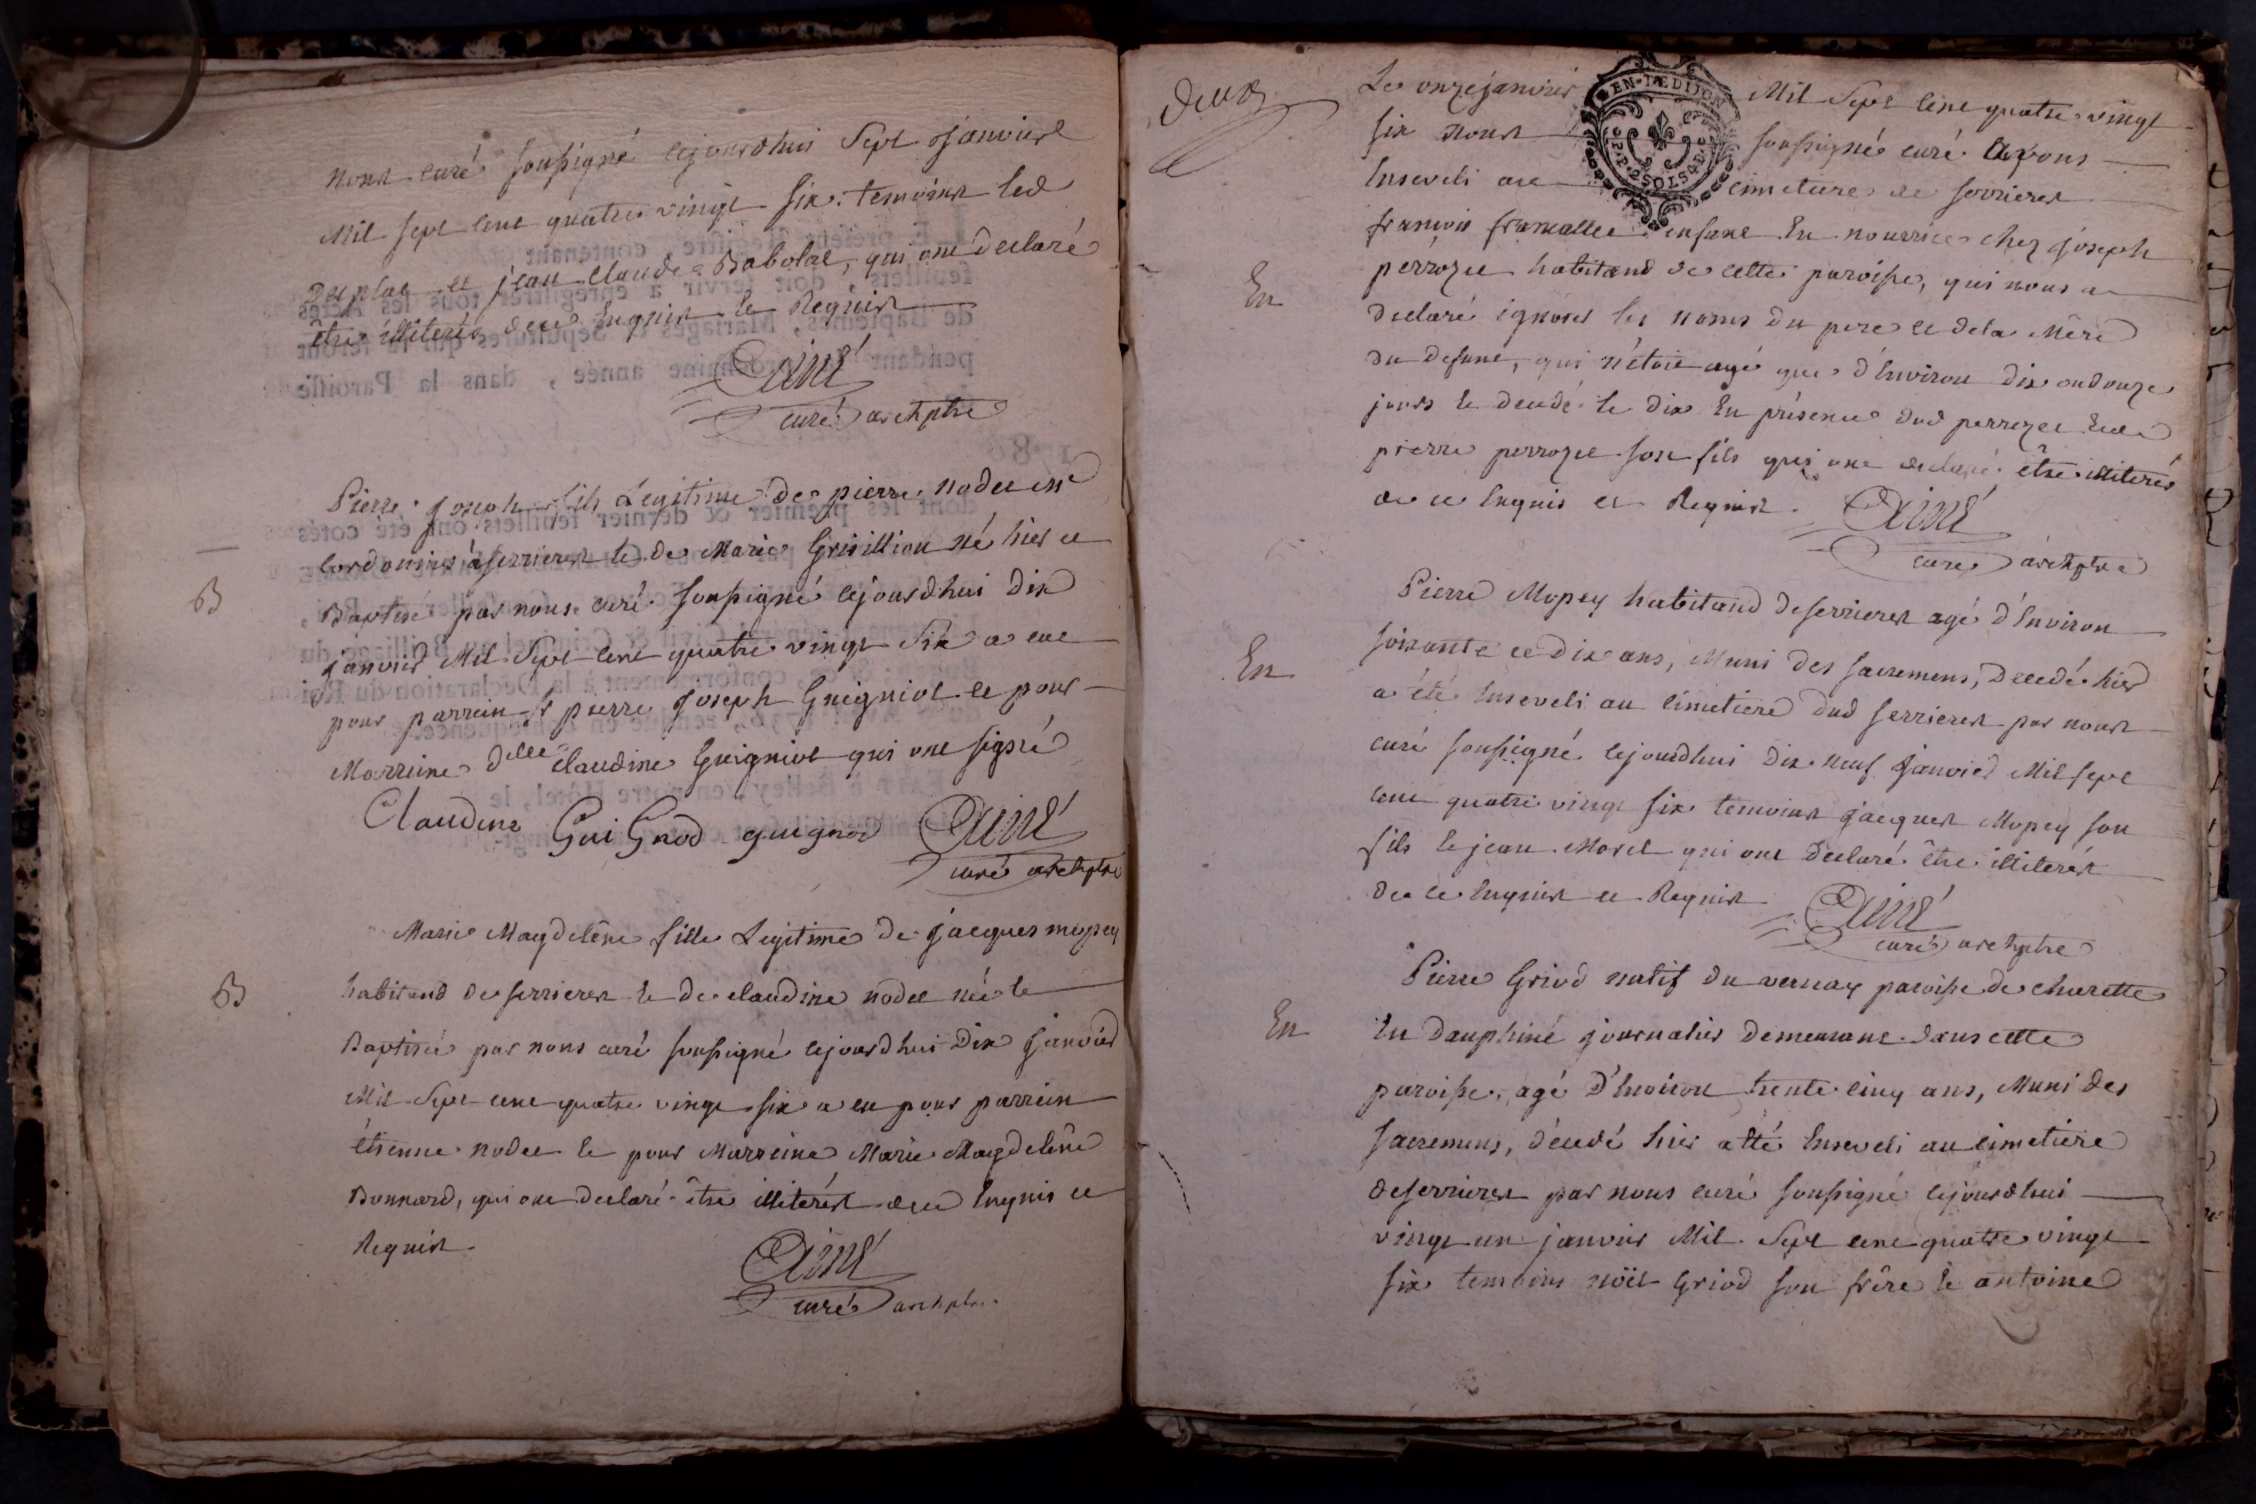 nous curé soussigné cejourdhui Sept janvier
Mil sept cent quatre vingt six. temoins led
Duplac et jean claude Babolat, qui ont declaré
être illiterés dece Enquis et Requis
Aimé
curé archptre
Pierre joseph fils Legitime de pierre nodet
Cordonnier à serrieres et de Marie Grisillion né hier et
B
Baptisé par nous curé soussigné cejourdhui dix
janvier Mil Sept cent quatre vingt Six a eut
pour parrein Sr pierre joseph Guigniot et pour
Marreine delle claudine Guigniot qui ont signé
Claudine GuiGnod guignod Aimé
curé archptre
Marie Magdelêne fille Legitime de jacques mopey
B
habitand de serrieres et de claudine nodet née et
Baptisée par nous curé soussigné cejourdhui Dix janvier
Mil Sept cent quatre vingt six a eu pour parrein
étienne nodet et pour Marreine Marie Magdelêne
Bonnard, qui ont declaré être illiterés dece Enquis et
Requis.
Aimé
curé archptre
deux
Le onze janvier Mil Sept cent quatre vingt
six nous soussigné curé avons
Enseveli au cimetiere de serrieres
EN-T.DE DIJON
P.P. 2 SOLS 4 D.
françois enfant En nourrice chez joseph
En
perrozet habitand de cette paroisse, qui nous a
declaré ignorer les noms du pere et dela Mêre
du defunt, qui n'étoit agé que d'Environ dix oudouze
jours et decedé le dix En présence dud perrozet et de
pierre perrozet son fils qui ont declaré être illiterés
de ce Enquis et Requis. Aimé
curé archptre
Pierre Mopey habitand deserrieres agé d'Environ
En
soixante et dix ans, Muni des sacremens, Decedé hier
a été Enseveli au cimetiere dud serrieres par nous
curé soussigné cejourdhui dix neuf janvier Mil sept
cent quatre vingt six temoins jacques Mopey son
fils et jean Morel qui ont declaré être illiterés
de ce Enquis et Requis Aimé
curé archptre
Pierre Griod natif du vernay paroisse de charette
En
En dauphiné journalier demeurant dans cette
paroisse, agé d'Environ trente cinq ans, Muni des
sacremens, décedé hier a été Enseveli au cimetiere
deserrieres par nous curé soussigné cejourdhui
vingt un janvier Mil Sept cent quatre vingt
six temoins noël Griod son frère et antoine